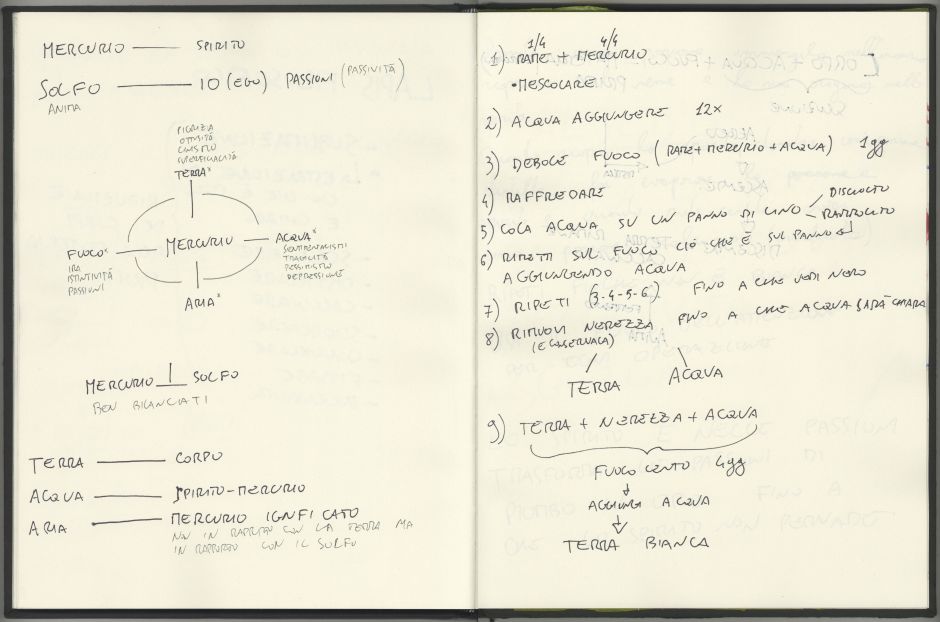 MERCURIO — SPIRITO
SOLFO — IO (EGO) PASSIONI (PASSIVITÀ)
ANIMA
PIGRIZIA
OTTUSITÀ
CINISMO
SUPERFICIALITÀ
TERRA
FUOCO
IRA
ISTINTIVITÀ
PASSIONI
MERCURIO
ACQUA
SENTIMENTALISMO
FRAGILITÀ
PESSIMISMO
DEPRESSIONE
ARIA
MERCURIO SOLFO
BEN BILANCIATI
TERRA — CORPO
ACQUA — SPIRITO-MERCURIO
ARIA — MERCURIO IGNIFICATO
NON IN RAPPORTO CON LA TERRA MA
IN RAPPORTO CON IL SOLFO
1/4 4/4
1) RAME + MERCURIO
• MESCOLARE
2) ACQUA AGGIUNGERE 12x
3) DEBOLE FUOCO (RAME + MERCURIO + ACQUA) 1gg
4) RAFFREDDARE
5) COLA ACQUA SU UN PANNO DI LINO
DISCIOLTO
RAPPOLITO
6) RIMETTI SUL FUOCO CIÒ CHE È SUL PANNO
AGGIUNGENDO ACQUA
7) RIPETI (3-4-5-6) FINO A CHE VEDI NERO
8) RIMUOVI NEREZZA FINO A CHE ACQUA SARÀ CHIARA
(E CONSERVALA)
TERRA ACQUA
9) TERRA + NEREZZA + ACQUA
FUOCO LENTO 4gg
AGGIUNGI ACQUA
TERRA BIANCA